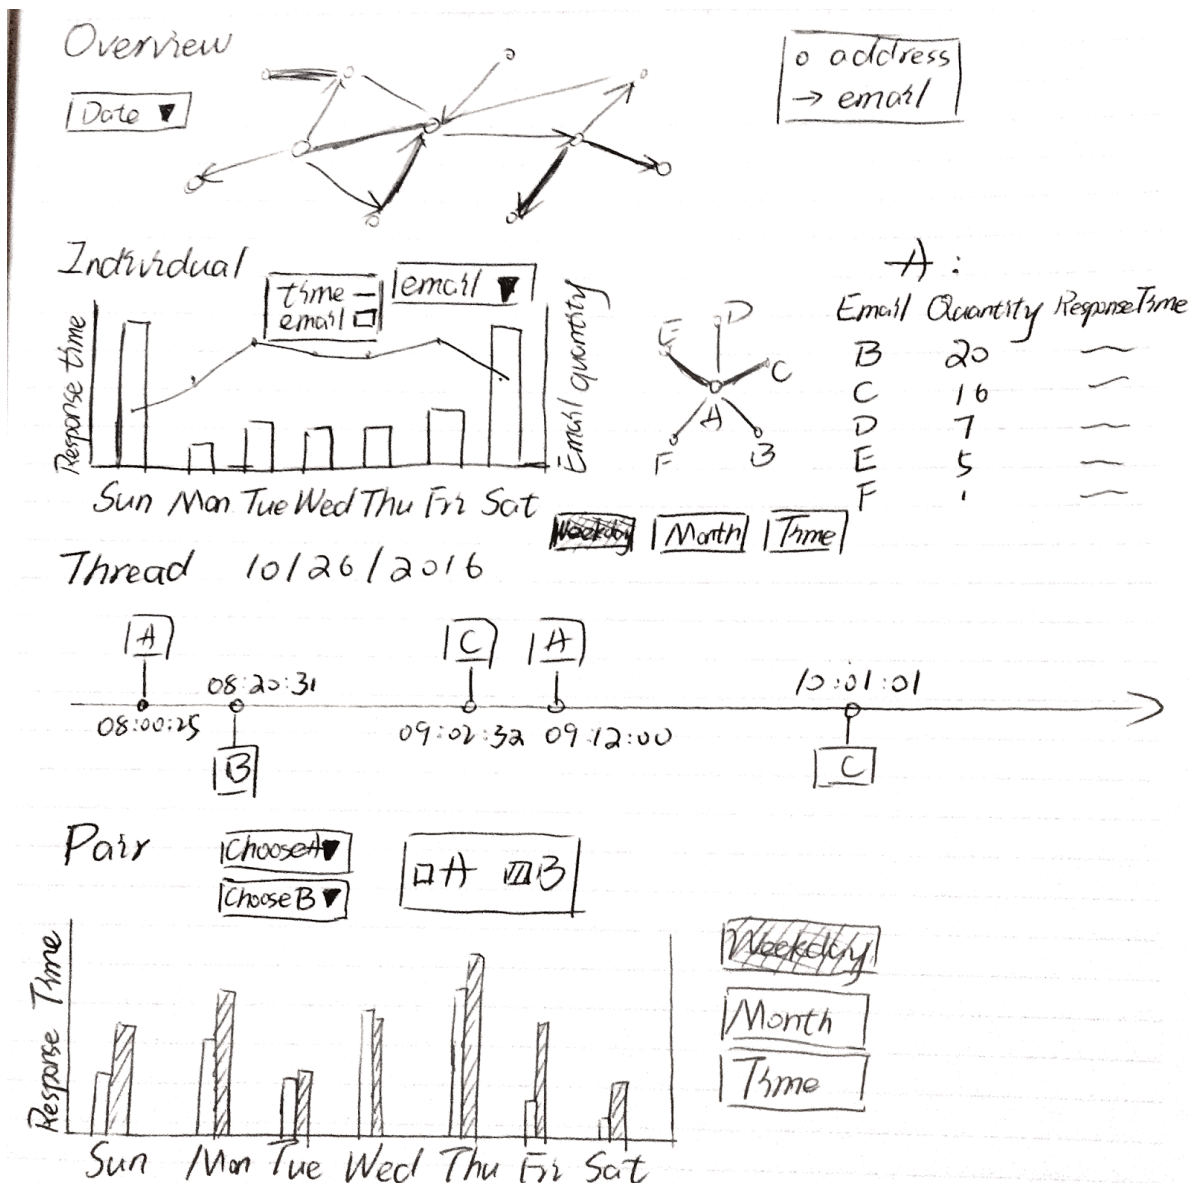 Overview
Date ▼
o address
→ email
Individual
time —
email □
email ▼
Response time
Email quantity
Sun Mon Tue Wed Thu Fri Sat
E
D
C
A
F
B
A:
Email Quantity Response Time
B 20
C 16
D 7
E 5
F 1
Weekday Month Time
Thread 10/26/2016
A
C
A
08:20:31
10:01:01
08:00:25
09:02:32 09:12:00
B
C
Pair
Choose A ▼
Choose B ▼
□ A ▨ B
Response Time
Sun Mon Tue Wed Thu Fri Sat
Weekday
Month
Time